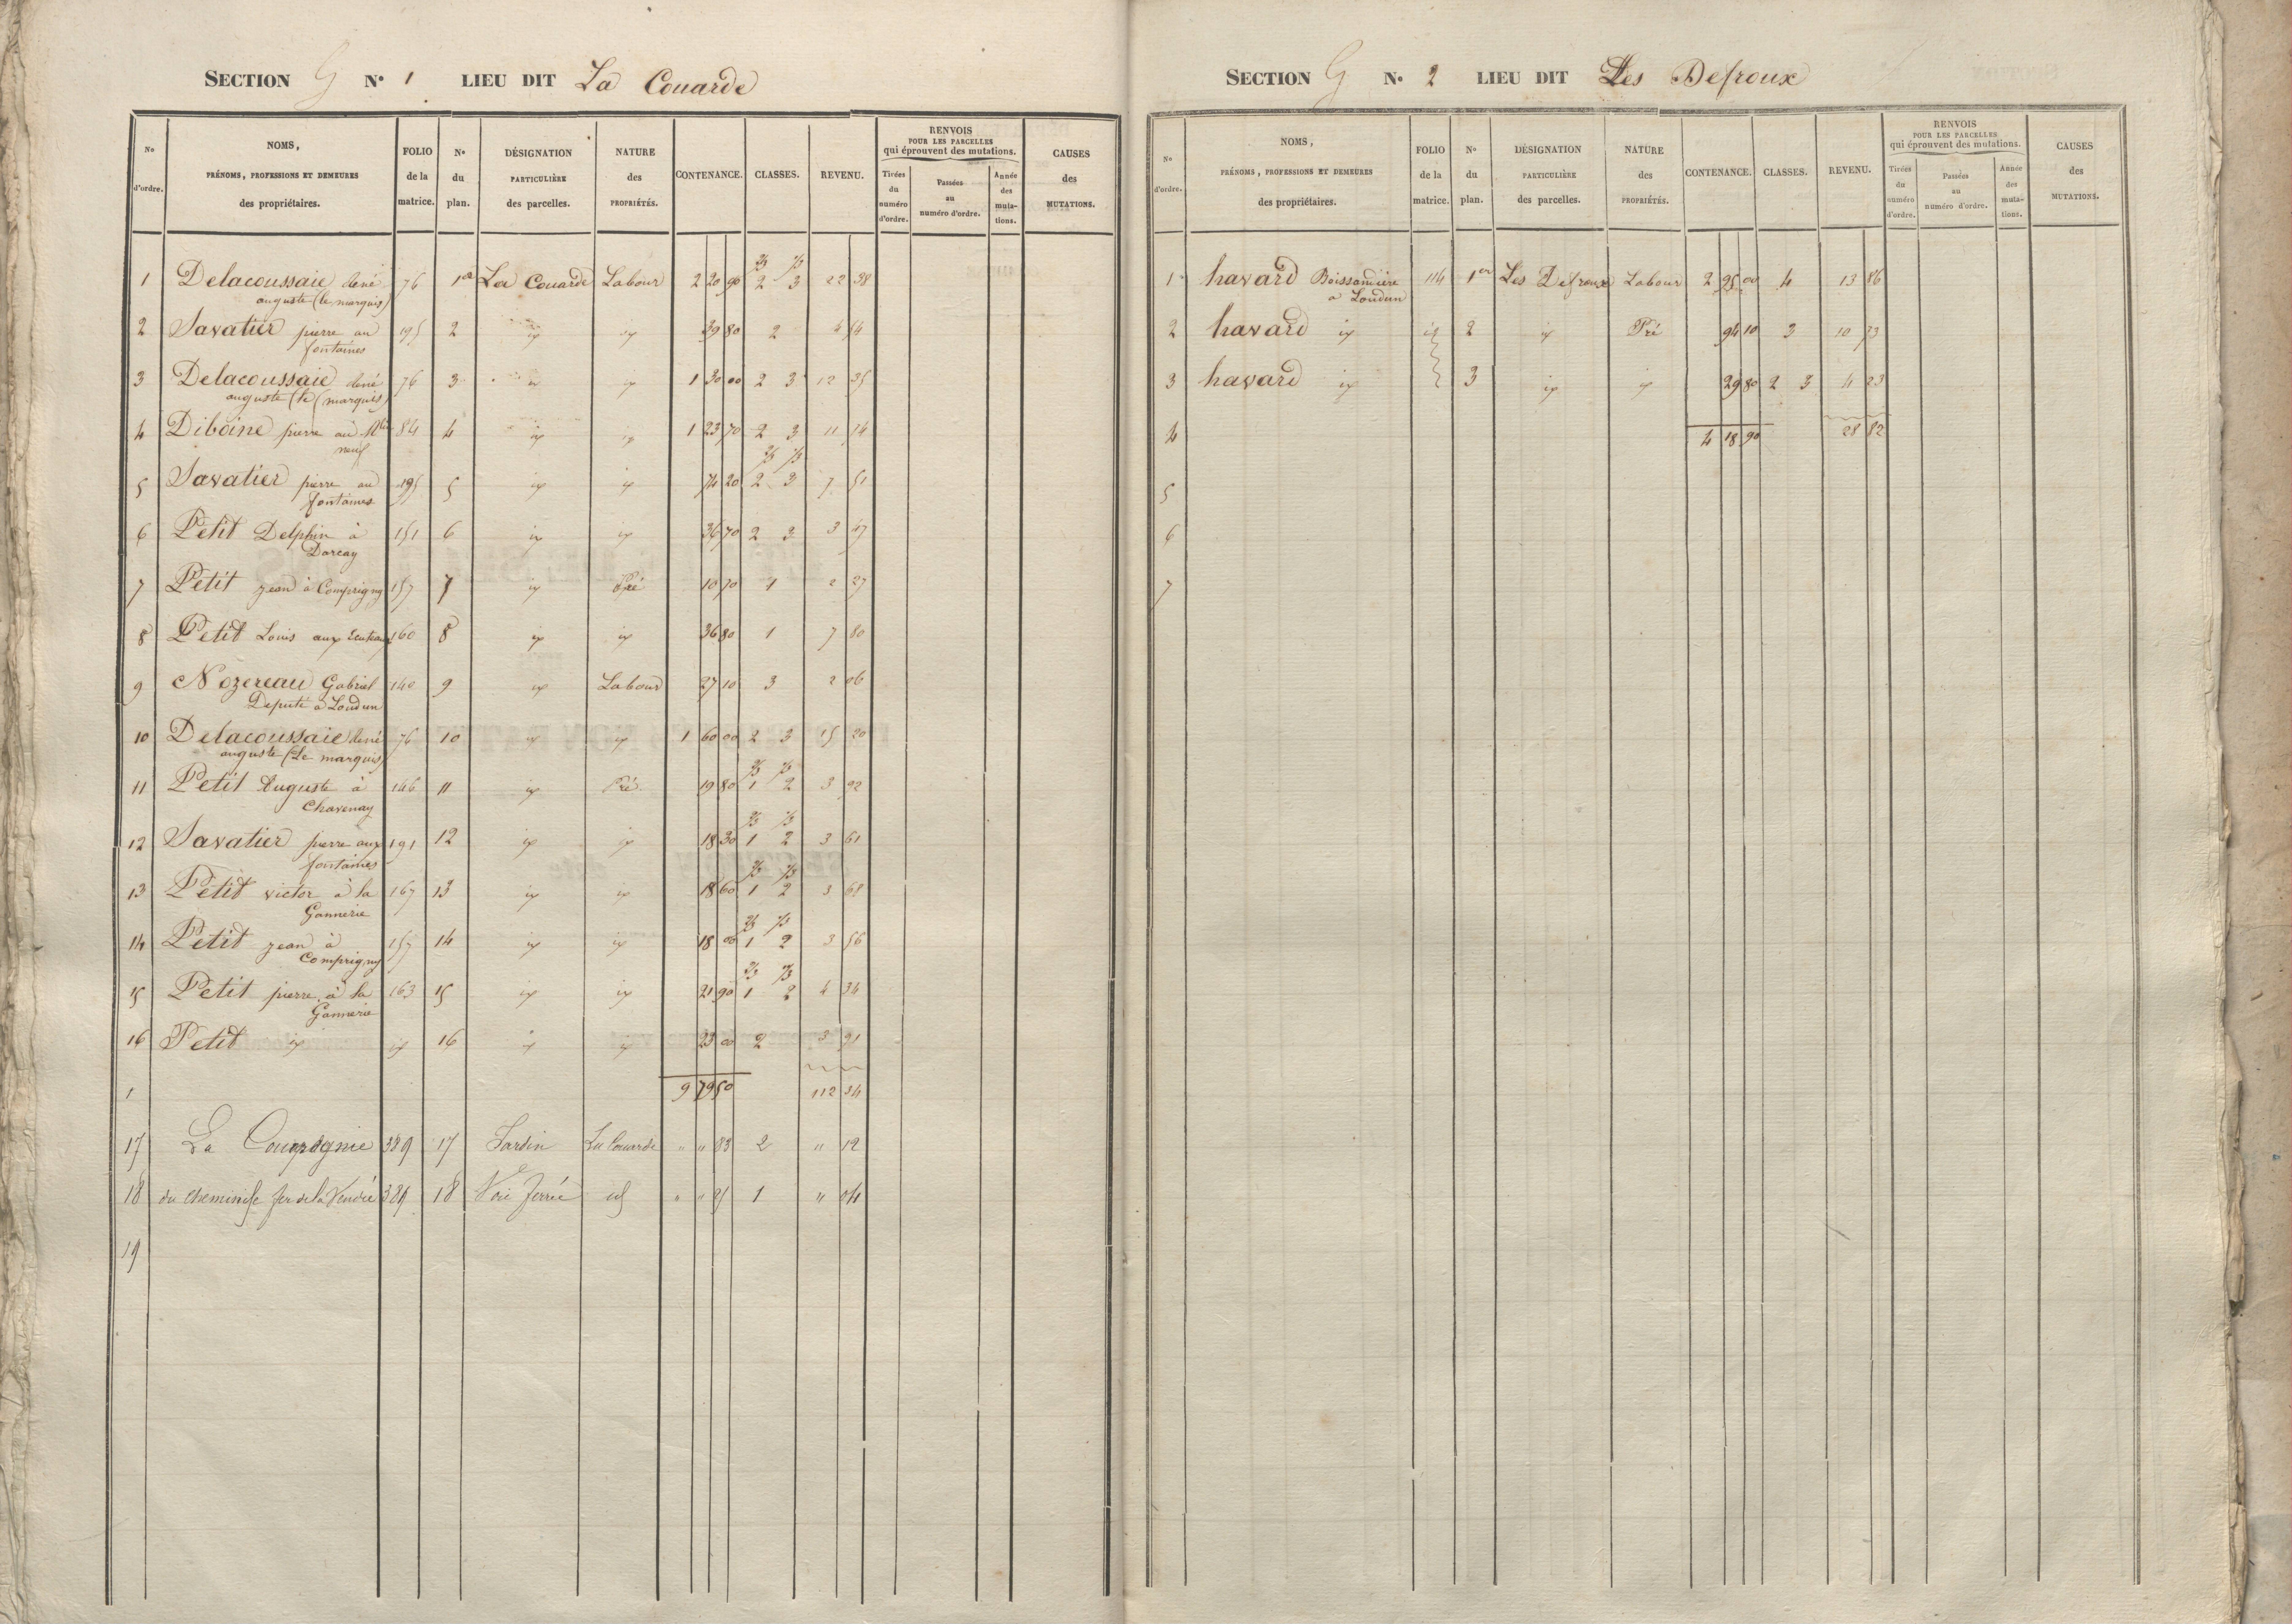 SECTION G N° 1 LIEU DIT La Couarde
N° d'ordre.
NOMS,
PRÉNOMS, PROFESSIONS ET DEMEURES
des propriétaires.
FOLIO de la matrice.
N° du plan.
DÉSIGNATION PARTICULIÈRE des parcelles.
NATURE des PROPRIÉTÉS.
CONTENANCE.
CLASSES.
REVENU.
RENVOIS
POUR LES PARCELLES
qui éprouvent des mutations.
Tirées du numéro d'ordre.
Passées au numéro d'ordre.
Année des mutations.
CAUSES des MUTATIONS.
2/3 1/3
1 Delacoussaie René 76 1er La Couarde Labour 2 20 90 2 3 22 38
auguste (le marquis)
2 Savatier pierre au 195 2 id id 39 80 2 4 54
fontaines
3 Delacoussaie René 76 3 id id 1 30 00 2 3 12 35
auguste (le marquis)
4 Diboine pierre au 84 4 id id 1 23 70 2 3 11 74
neuf
2/3 1/3
5 Savatier pierre au 195 5 id id 74 20 2 3 7 51
fontaines
6 Petit Delphin à 151 6 id id 36 70 2 3 3 47
Dorcay
7 Petit jean à Comprigny 157 7 id Pré 10 70 1 2 27
8 Petit Louis aux 160 8 id id 36 80 1 7 80
9 Nozereau Gabriel 140 9 id Labour 27 10 3 2 06
Deputé à Loudun
10 Delacoussaie René 76 10 id id 1 60 00 2 3 15 20
auguste (Le marquis)
2/3 1/3
11 Petit Auguste à 146 11 id Pré 19 80 1 2 3 92
Chavenay
2/3 1/3
12 Savatier pierre aux 191 12 id id 18 30 1 2 3 61
fontaines
2/3 1/3
13 Petit victor à la 167 13 id id 18 60 1 2 3 68
Gannerie
2/3 1/3
14 Petit jean à 157 14 id id 18 00 1 2 3 56
Comprigny
2/3 1/3
15 Petit pierre à la 163 15 id id 21 90 1 2 4 34
Gannerie
16 Petit id id 16 id id 23 00 2 3 91
1 9 79 50 112 34
17 La Compagnie 389 17 Jardin La Couarde " " 83 2 " 12
18 du chemin de fer de la Vendée 389 18 Voie ferrée id " " 25 1 " 04
19
SECTION G N° 2 LIEU DIT Les Defroux
N° d'ordre.
NOMS,
PRÉNOMS, PROFESSIONS ET DEMEURES
des propriétaires.
FOLIO de la matrice.
N° du plan.
DÉSIGNATION PARTICULIÈRE des parcelles.
NATURE des PROPRIÉTÉS.
CONTENANCE.
CLASSES.
REVENU.
RENVOIS
POUR LES PARCELLES
qui éprouvent des mutations.
Tirées du numéro d'ordre.
Passées au numéro d'ordre.
Année des mutations.
CAUSES des MUTATIONS.
1 havard Boissandière 114 1er Les Defroux Labour 2 95 00 4 13 86
a Loudun
2 havard id id 2 id Pré 94 10 3 10 73
3 havard id 3 id id 29 80 2 3 4 23
4 4 18 90 28 82
5
6
7